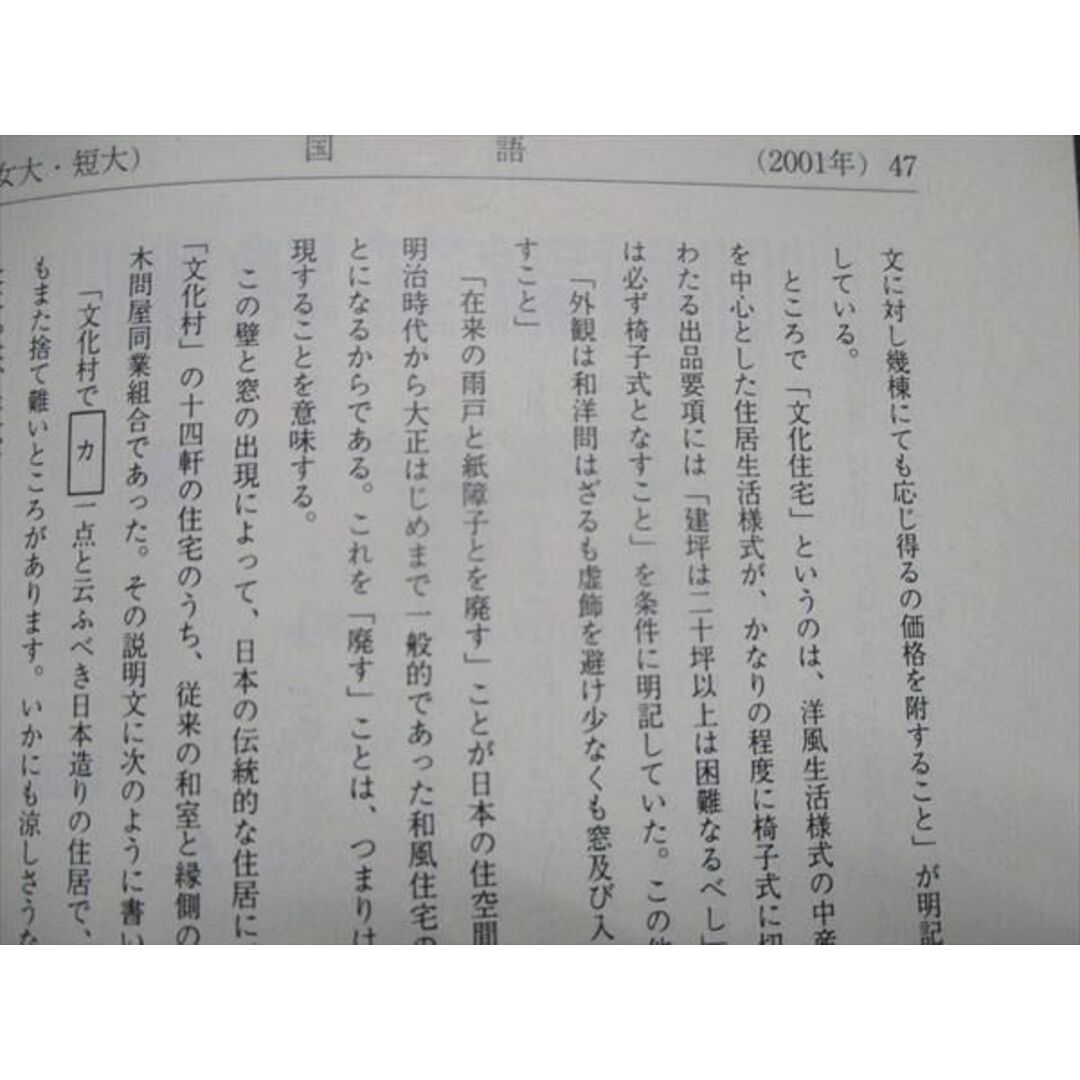 女大・短大） 国 語 （2001年） 47
文に対し幾棟にても応じ得るの価格を附すること」が明記
している。
ところで「文化住宅」というのは、洋風生活様式の中産
を中心とした住居生活様式が、かなりの程度に椅子式に切
わたる出品要項には「建坪は二十坪以上は困難なるべし」
は必ず椅子式となすこと」を条件に明記していた。この他
「外観は和洋問はざるも虚飾を避け少なくも窓及び入
すこと」
「在来の雨戸と紙障子とを廃す」ことが日本の住空間
明治時代から大正はじめまで一般的であった和風住宅の
とになるからである。これを「廃す」ことは、つまりは
現することを意味する。
この壁と窓の出現によって、日本の伝統的な住居に
「文化村」の十四軒の住宅のうち、従来の和室と縁側の
木問屋同業組合であった。その説明文に次のように書い
「文化村で カ 一点と云ふべき日本造りの住居で、
もまた捨て難いところがあります。いかにも涼しさうな